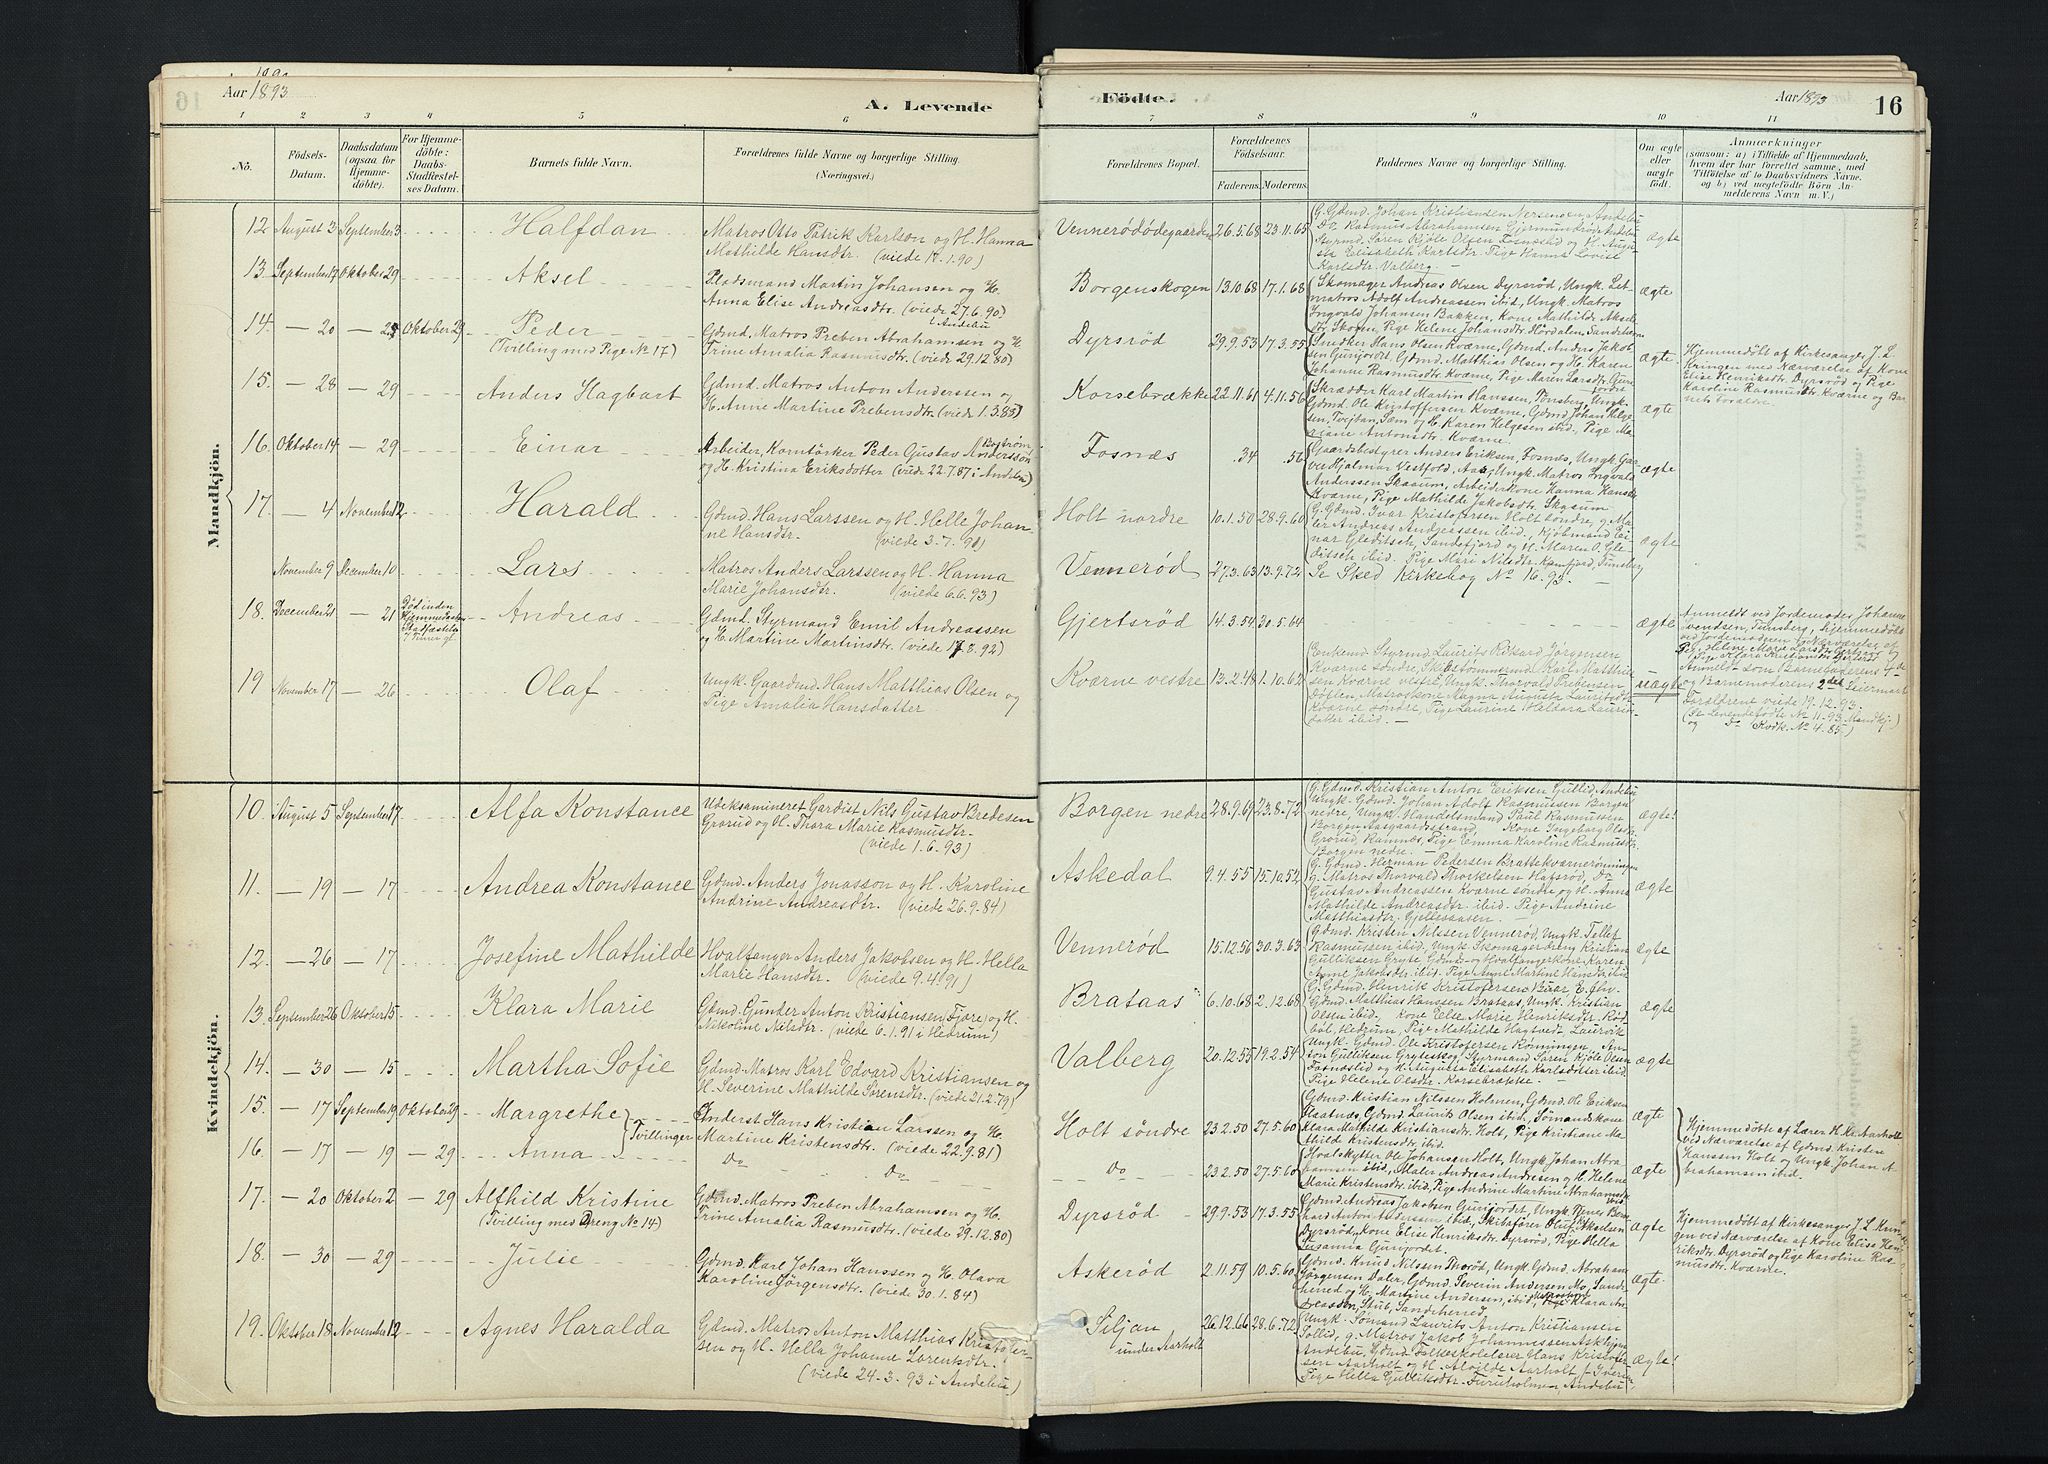 Aar 1893
A. Levende
Födte.
Aar 1893
16
1 2 3 4 5 6 7 8 9 10 11
No.
Födsels-
Datum.
Daabsdatum
(ogsaa for
Hjemme-
döbte).
For Hjemme-
döbte:
Daabs-
Stadfæstel-
ses Datum.
Barnets fulde Navn.
Forældrenes fulde Navne og borgerlige Stilling
(Næringsvei.)
Forældrenes Bopæl.
Forældrenes
Födselsaar.
Faderens. Moderens.
Faddernes Navne og borgerlige Stilling.
Om ægte
eller
uægte
födt.
Anmærkninger
(saasom: a) i Tilfælde af Hjemmedaab,
hvem der har forrettet samme, med
Tilföielse af to Daabsvidners Navne.
og b) ved uægtefödte Börn An-
melderens Navn m. V.)
Mandkjön.
12 August 3 September 3 Halfdan
Matros Otto Patrik Karlson og H. Hanna
Mathilde Hansdtr. (viede 17.1.90)
Vennerødødegaarden 26.5.68 23.11.65
G. Gdmd. Johan Kristiansen Andebu
Do Rasmus Abrahamsen Gjermundrød Andebu
Styrmd. Sören Kjöle Olsen Fosnæslid og H. Augu-
sta Elisabeth Karlsdtr. Pige Hanna Lovise
Karlsdtr. Valberg.
ægte
13. September 17 Oktober 29 Aksel
Pladsmand Martin Johansen og H.
Anna Elise Andreasdtr. (viede 27.6.90.
i Andebu
Borgenskogen 13.10.68 17.1.68
Skomager Andreas Olsen Dyrsröd, Ungk. Let-
matros Adolf Andreassen ibid, Ungk. Matros
Ingvald Johansen Bakken, Kone Mathilde Aksels-
dtr. Skorge, Pige Helene Johansdtr. Hördalen, Sandeherred
ægte
14. — 20 — 23 Oktober 29 Peder
(Tvilling med Pige No 17)
Gdmd. Matros Preben Abrahamsen og H.
Trine Amalia Rasmusdtr. (viede 29.12.80)
Dyrsröd 29.9.53 17.3.55
Snedker Hans Olsen Kværne, Gdmd. Anders Jakob-
sen Gunjordet. Gdmd. Matthias Olsen og H. Karen
Johanne Rasmusdtr. Kværne, Pige Maren Larsdtr. Gun-
jordet
ægte.
Hjemmedöbt af Kirkesanger J. L.
Kringen med Nærværelse af Kone
Elise Henriksdtr. Dyrsröd og Pige
Karoline Rasmusdtr. Kværne og Bar-
nets Forældre.
15. — 28 — 29 Anders Hagbart
Gdmd. Matros Anton Anderssen og
H. Anne Martine Prebensdtr. (viede 1.3.85)
Korsebrække 22.11.61 4.11.56
Skrædder Karl Martin Hanssen, Tönsberg, Ungk.
Gdmd. Ole Kristoffersen Kværne, Gdmd. Johan Helge-
sen, Tveitan, Sem og H. Karen Helgesen ibid. Pige Ma-
riane Antonsdtr. Kværne.
ægte
16. Oktober 14 — 29 Einar
Arbeider, Korntörker Peder Gustav Andersson
Boström
og H. Kristina Eriksdotter (viede 22.7.87 i Andebu)
Fosnæs .34 .56
Gaardsbestyrer Anders Eriksen, Fosnæs, Ungk. Gar-
ver Hjalmar Vestfold, Aas, Ungk. Matros Ingvald
Anderssen Skaaum, Arbeiderkone Hanna Hansdtr.
Kværne, Pige Mathilde Jakobsdtr. Skaaum
ægte
17. — 4 November 12 Harald
Gdmd. Hans Larssen og H. Helle Johan-
ne Hansdtr. (viede 3.7.90)
Holt nordre 10.1.50 28.9.60
G. Gdmd. Ivar Kristofersen Holt söndre, g. Ma-
ler Andreas Anderssen ibid., Kjöbmand Ei-
nar Gleditsch, Sandefjord og H. Maren O. Gle-
ditsch ibid. Pige Mari Nilsdtr. Kamfjord, Tunsberg
ægte
November 9 December 10 Lars
Matros Anders Larssen og H. Hanna
Marie Johansdtr. (viede 6.6.93)
Vennerød 27.3.63 13.9.72 Se Sked Kirkebog No 16.93.
18. December 21 — 21 Död inden
Hjemmedaabens
Stadfæstelse
Andreas
Gdmd. Styrmand Emil Andreassen
og H. Martine Martinsdtr. (viede 17.8.92)
Gjertsröd 14.3.54 30.5.64 ægte
Anmeldt ved Jordemoder Johanne
Svendsen, Tunsberg, hjemmedöbt
ved Jordemoderen i Nærværelse af
Pg. Heline Marie Larsdtr. Gjertsröd
Pige Klara Kristiansdtr. Gjertsröd
19 November 17 — 26 Olaf
Ungk. Gaardmd. Hans Matthias Olsen og
Pige Amalia Hansdatter
Kværne vestre 13.2.48 1.10.62
Enkemd. Styrmd. Laurits Rikard Jörgensen
Kværne söndre, Skibstömmermd. Karl Matthi-
sen Kværne vestre, Ungk. Thorvald Prebensen
Döflen, Matroskone Magna Augusta Lauritsdtr.
Kværne söndre, Pige Laurine Heldora Laurits-
datter ibid.
uægte
Anmeldt som Barnefaderens 1ste
og Barnemoderens 2det Leiermaal.
Forældrene viede 19.12.93.
(Se Levendefödte No 11-93 Mandkj.
og Do Kvdk. No 4.85.)
Kvindekjön.
10. August 5 September 17 Alfa Konstance
Udeksamineret Gardist Nils Gustav Bredesen
Grorud og H. Thora Marie Rasmusdtr.
(viede 1.6.93)
Borgen nedre 28.9.69 23.8.72
G. Gdmd. Kristian Anton Eriksen Gullid, Andebu
Ungk. Gdmd. Johan Adolf Rasmussen Borgen
nedre, Ungk. Handelsmand Paul Rasmussen
Borgen Aasgaardsstrand, Kone Ingeborg Olsdtr.
Grorud, Ramnes, Pige Emma Karoline Rasmusdtr.
Borgen nedre.
ægte!
11. — 19 — 17 Andrea Konstance
Gdmd. Anders Jonasson og H. Karoline
Andrine Andreasdtr. (viede 26.9.84)
Askedal 9.4.55 15.10.52
G. Gdmd. Herman Pedersen Brattekværnerönningen
g. Matros Thorvald Thorkelsen Hafsröd, Do
Gustav Andreassen Kværne söndre og H. Anna
Mathilde Andreasdtr. ibid. Pige Andrine
Matthiasdtr. Gjellesaasen.
ægte
12. — 26 — 17 Josefine Mathilde
Hvalfanger Anders Jakobsen og H. Hella
Marie Hansdtr. (viede 9.4.91)
Vennerød 15.12.56 30.3.63
Gdmd. Kristen Nilsen Vennerød, Ungk. Tellef
Rasmussen ibid. Ungk. Skomagerdreng Kristian
Gulliksen Gryte, Gdmd. og Hvalfangerkone Karen
Anne Jakobsdtr. ibid. Pige Anne Martine Hansdtr. ibid
ægte
13. September 26 Oktober 15 Klara Marie
Gdmd. Gunder Anton Kristiansen Fjære og H.
Nikoline Nilsdtr. (viede 6.1.91 i Hedrum)
Brataas 6.10.68 2.12.68
G. Gdmd. Henrik Kristofersen Buar E.
Gdmd. Matthias Hanssen Brataas, Ungk. Kristian
Olsen ibid. Kone Else Marie Henriksdtr. Röd-
böl, Hedrum, Pige Mathilde Hagtvedt, Laurvik
ægte
14. — 30 — 15 Martha Sofie
Gdmd. Matros Karl Edvard Kristiansen og
H. Severine Mathilde Sörensdtr. (viede 21.2.79)
Valberg 20.12.55 19.2.54
Ungk. Gdmd. Ole Kristofersen Rönningen, An-
ton Gulliksen Gryteskog, Styrmand Sören Kjöle Olsen
Fosnæslid og H. Augusta Elisabeth Karlsdotter ibid
Pige Helene Olsdtr. Korsebrække.
ægte
15. — 17 September 19 Oktober 29 Margrethe
Tvillinger
Inderst Hans Kristian Larssen og H.
Martine Kristensdtr. (viede 22.9.81)
Holt söndre 23.2.50 27.5.60
Gdmd. Kristian Nilssen Holmen, Gdmd. Ole Eriksen
Slaatnes, Gdmd. Laurits Olsen ibid, Sömandskone
Klara Mathilde Kristiansdtr. Holt, Pige Kristiane Ma-
thilde Kristensdtr. ibid.
ægte
Hjemmedöbt af Lærer H. Kr. Aarholt
ved Nærværelse af Gdmd. Kristen
Hanssen Holt og Ungk. Johan A-
brahamsen ibid.
16. — 17 — 19 — 29 Anna
Do Do
Do 23.2.50 27.5.60
Hvalskytter Ole Johansen Holt, Ungk. Johan Abra-
hamsen ibid, Maler Andreas Andersen og H. Helene
Marie Kristensdtr. ibid, Pige Andrine Martine Abrahamsdtr.
ibid
ægte
17. — 20 Oktober 2 — 29 Alfhild Kristine
(Tvilling med Dreng No 14)
Gdmd. Matros Preben Abrahamsen og H.
Trine Amalia Rasmusdtr. (viede 29.12.80)
Dyrsröd 29.9.53 17.3.55
Gdmd. Andreas Jakobsen Gunjordet, Ungk. Bern-
hard Anton Andersen ibid, Skibsförer Oluf Akselsen
Dyrsröd, Kone Elise Henriksdtr. Dyrsröd, Pige Hella
Susanna Gunjordet.
ægte
Hjemmedöbt af Kirkesanger J. L. Krin-
gen ved Nærværelse af Kone Elise Hen-
riksdtr. Dyrsröd og Pige Karoline Ras-
musdtr. Kværne.
18. — 30 — 29 Julie
Gdmd. Karl Johan Hanssen og H. Olava
Karoline Jörgensdtr. (viede 30.1.84)
Askeröd 2.11.59 10.5.60
Gdmd. Knud Nilssen Thoröd, Ungk. Gdmd. Abraham
Jörgensen Daler, Gdmd. Severin Andersen Mo, Sande-
herred og H. Martine Andersen, ibid, Pige Klara An-
dreasdtr. Stub, Sandeherred
ægte
19. Oktober 18 November 12 Agnes Haralda
Gdmd. Matros Anton Matthias Kristofer-
sen og H. Hella Johanne Lorentsdtr.
(viede 24.3.93 i Andebu)
Siljan
under Aarholt
26.12.66 28.6.72
Ungk. Sömand Laurits Anton Kristiansen
Sollid, g. Matros Jakob Johannessen Askhjem
Andebu, Gdmd. Folkeskolelærer Hans Kristofer-
sen Aarholt og H. Alvilde Aarholt f. Iversen,
Pige Hella Gulliksdtr. Furuholmen, Andebu
ægte!